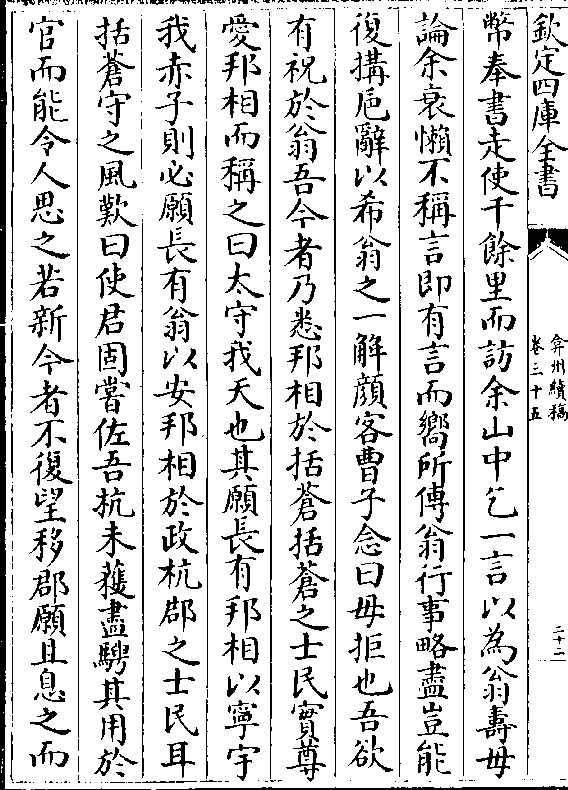 欽定四庫全書
弇州續稿
卷三十五
二十二
幣奉書走使千餘里而訪余山中乞一言以為翁壽毋
論余衰懶不稱言即有言而嚮所傳翁行事略盡豈能
復搆巵辭以希翁之一解顔客曹子念曰毋拒也吾欲
有祝於翁吾今者乃悉邦相於括蒼括蒼之士民實尊
愛邦相而稱之曰太守我天也其願長有邦相以寧宇
我赤子則必願長有翁以安邦相於政杭郡之士民耳
括蒼守之風歎曰使君固嘗佐吾杭未蒦盡騁其用於
官而能令人思之若新今者不復望移郡願且息之而